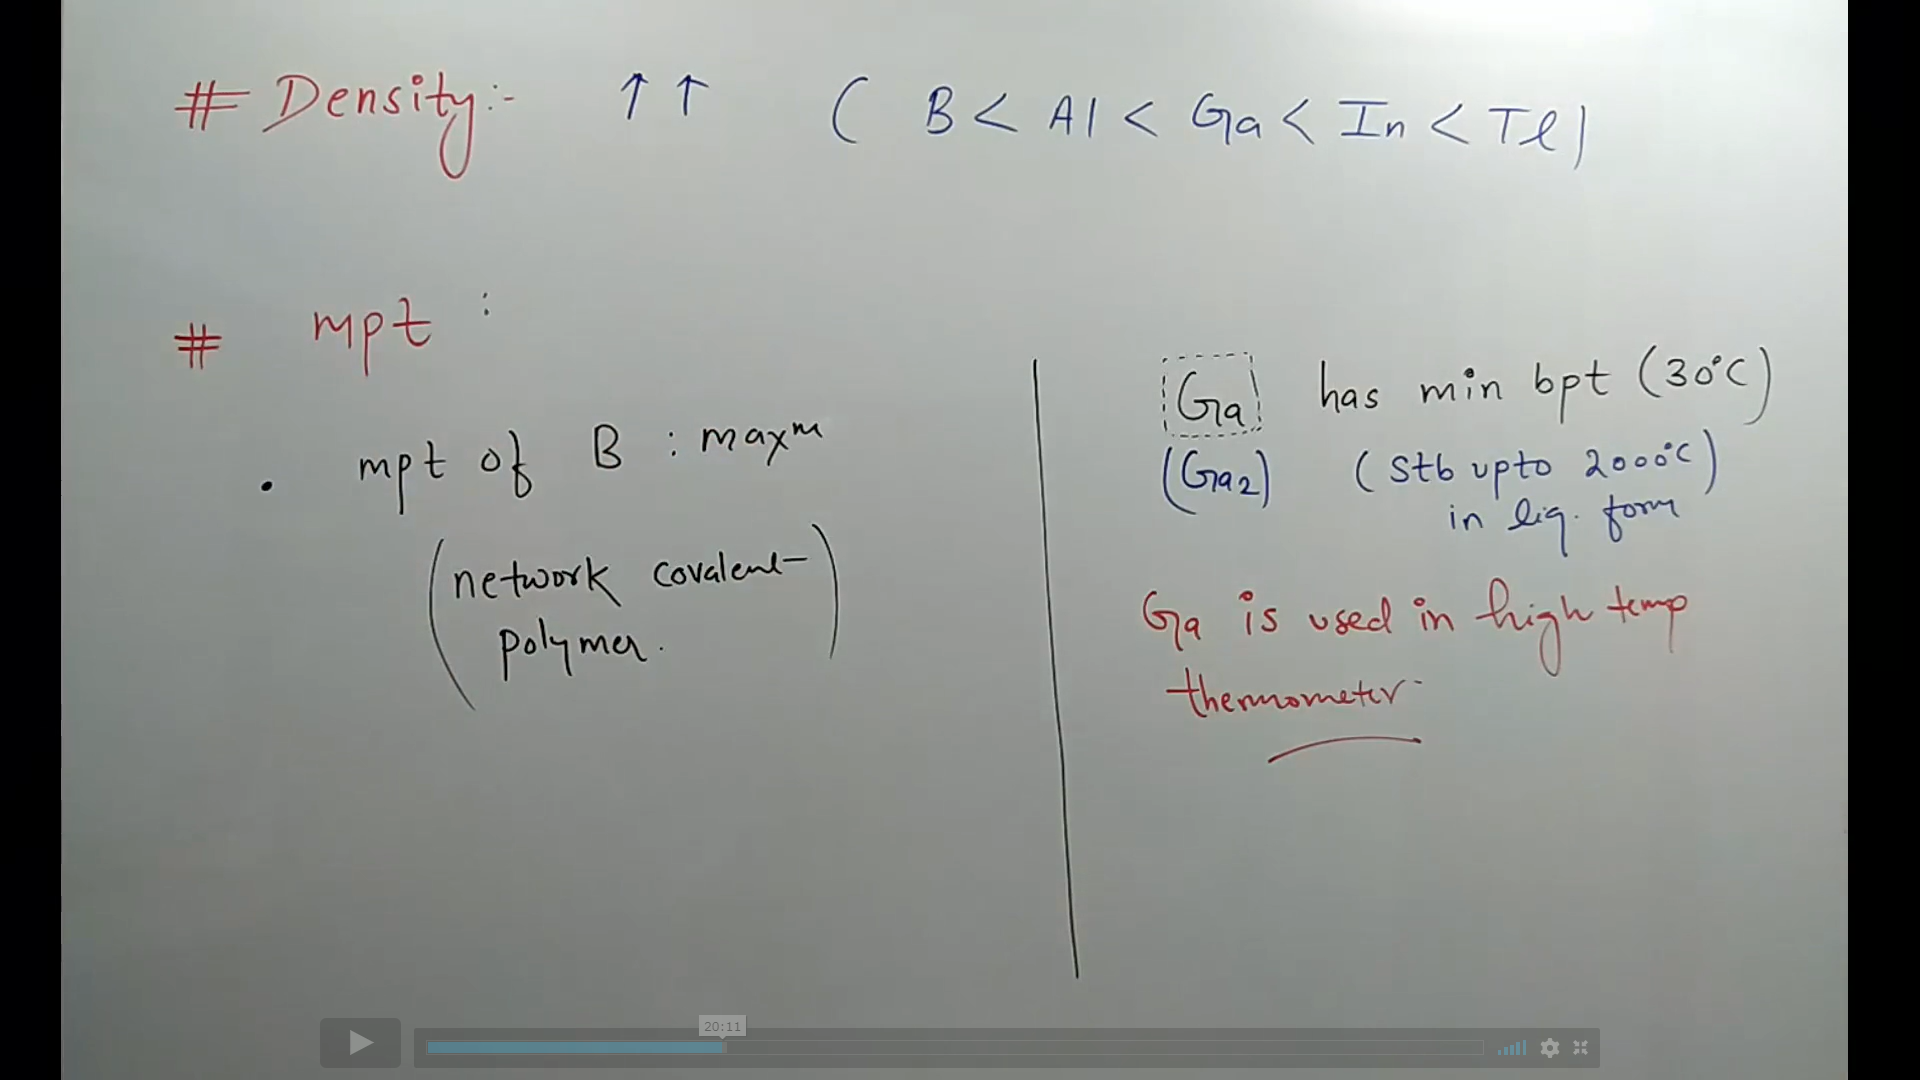 # Density:- ↑ ↑ ( B < Al < Ga < In < Tl )
# mpt :
• mpt of B : maxᵐ
(network covalent
polymer.)
Ga has min bpt (30°C)
(Ga₂) (Stb upto 2000°C)
in liq. form
Ga is used in high temp
thermometer
20:11